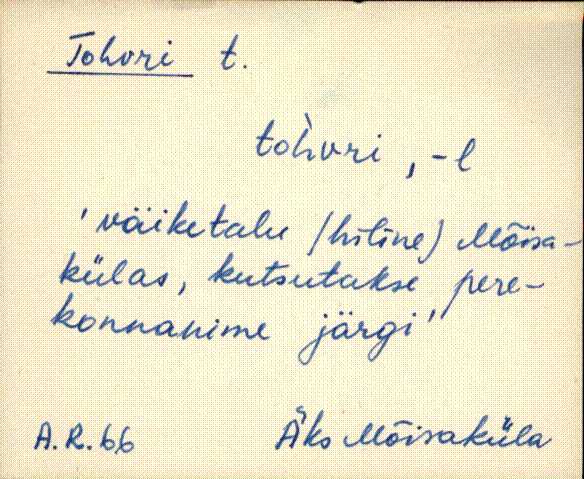 Tohvri t.
toh̀vri, -l
'väiketalu (hiline) Mõisa-
külas, kutsutakse pere-
konnanime järgi'
A.R. 66 Äks Mõisaküla